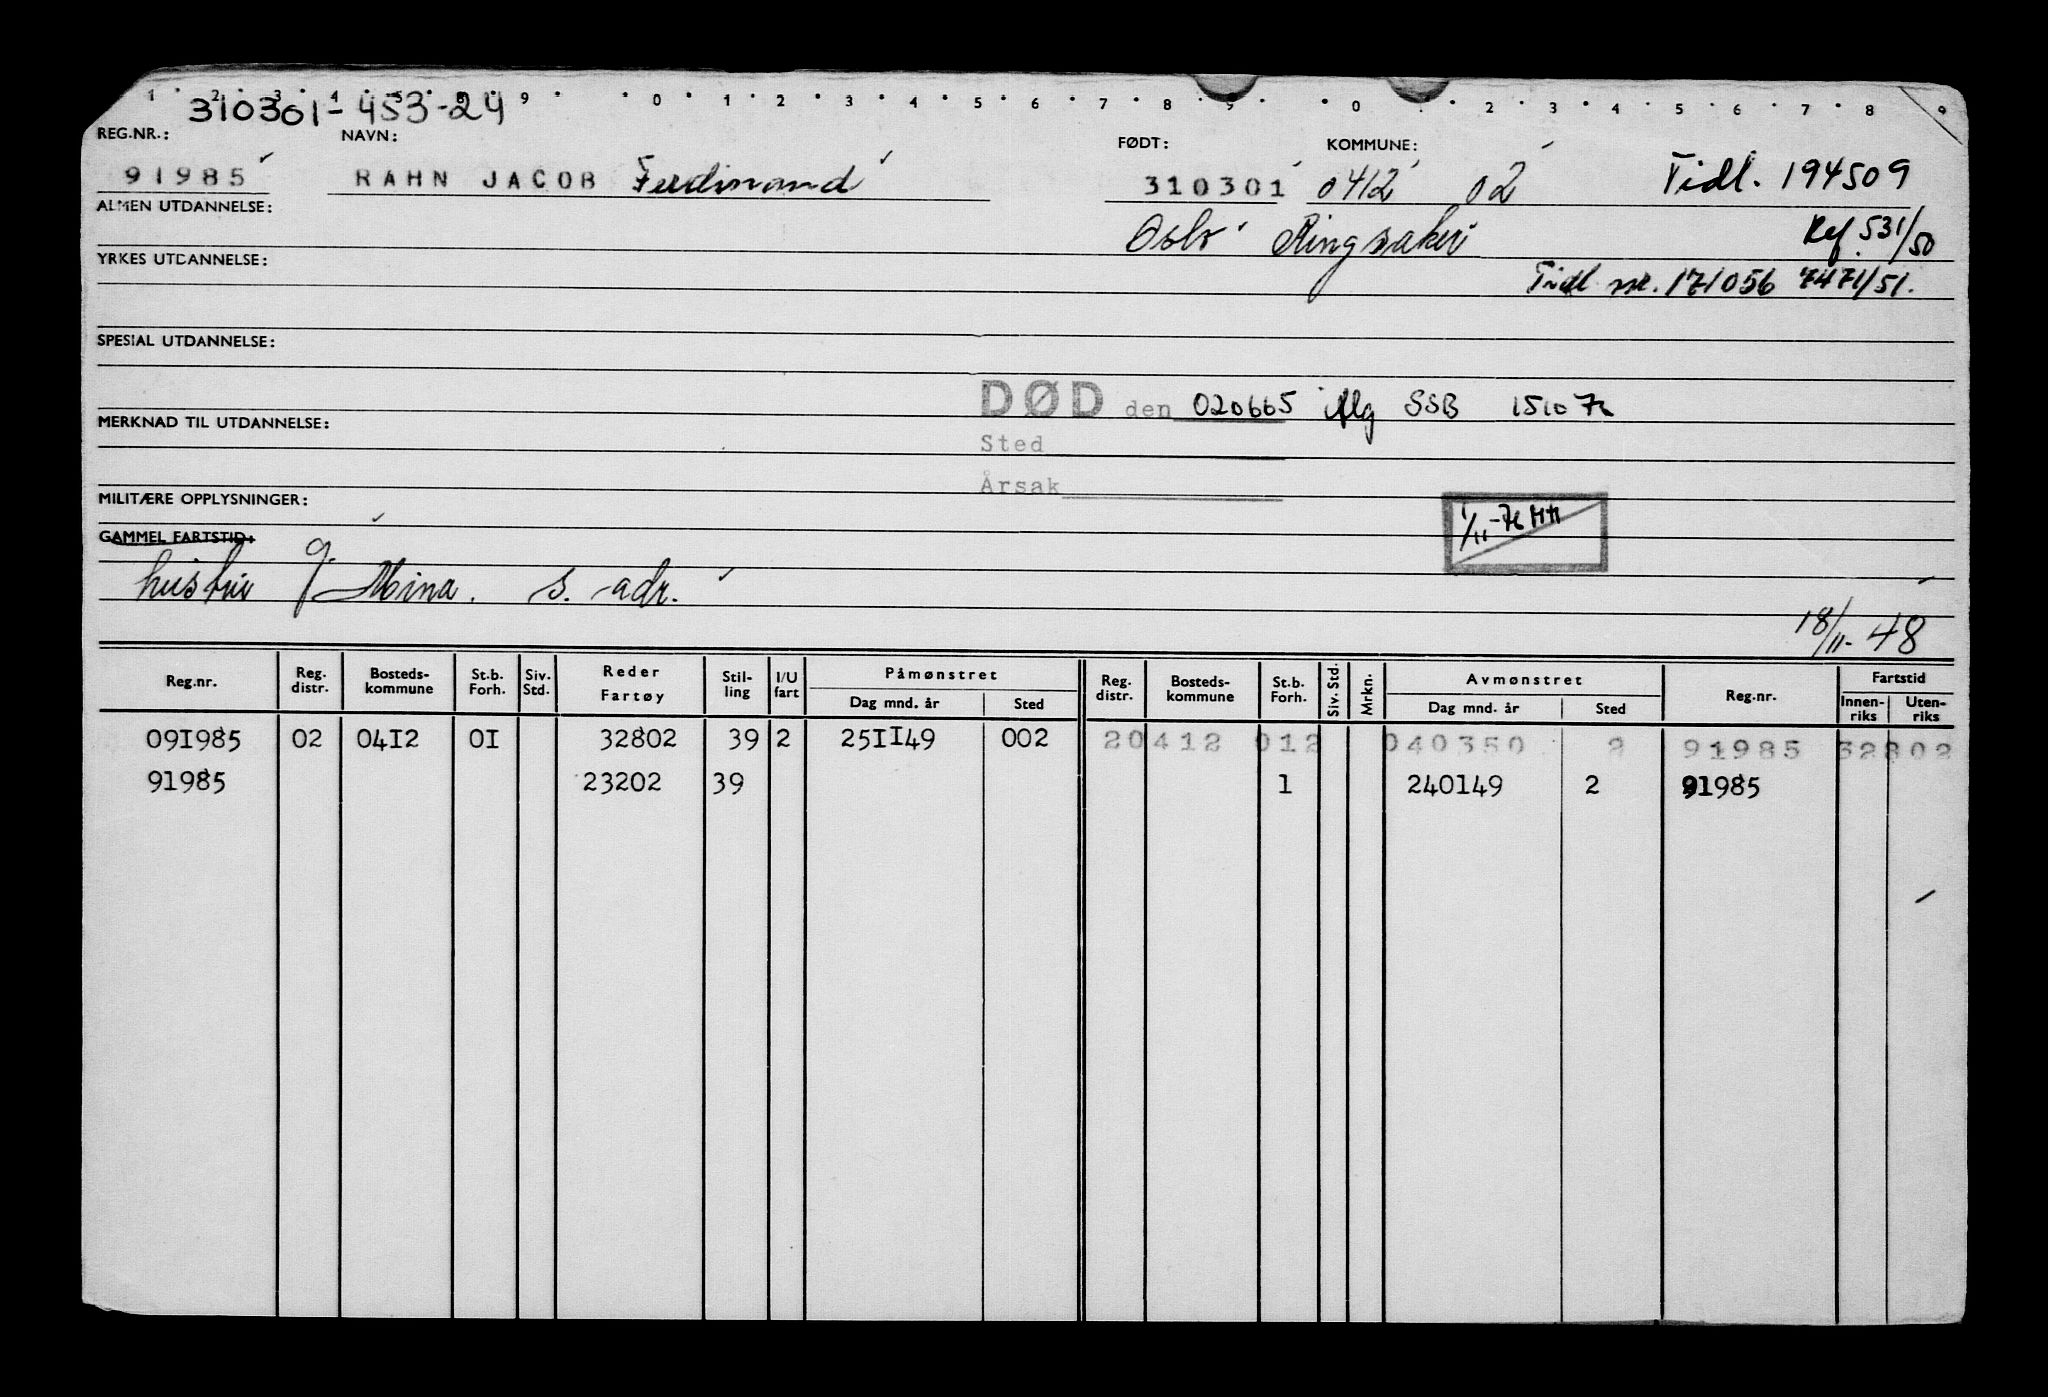 1 2 3 4 5 8 9 0 1 2 3 4 5 6 7 8 9 0 2 3 4 5 6 7 8 9
310301-453-24
REG.NR.: NAVN: FØDT: KOMMUNE:
91985 RAHN JACOB Ferdinand 310301 0412 02 Tidl. 194509
ALMEN UTDANNELSE: Oslo Ringsaker Ref. 531/50
YRKES UTDANNELSE: Tidl nr. 171056 7471/51.
SPESIAL UTDANNELSE:
DØD den 020665 iflg SSB 151076
MERKNAD TIL UTDANNELSE:
Sted
Årsak
MILITÆRE OPPLYSNINGER:
1/11-76 HH
GAMMEL FARTSTID:
hustru g. Mina. s. adr.
18/11-48
Reg.nr. Reg. distr. Bosteds-kommune St.b. Forh. Siv. Std. Reder Fartøy Stil-ling I/U fart Påmønstret Dag mnd. år Sted Reg. distr. Bosteds-kommune St.b. Forh. Siv. Std. Mrkn. Avmønstret Dag mnd. år Sted Reg.nr. Fartstid Innen-riks Uten-riks
091985 02 0412 01 32802 39 2 251149 002 20412 012 040350 2 91985 32802
91985 23202 39 1 240149 2 91985